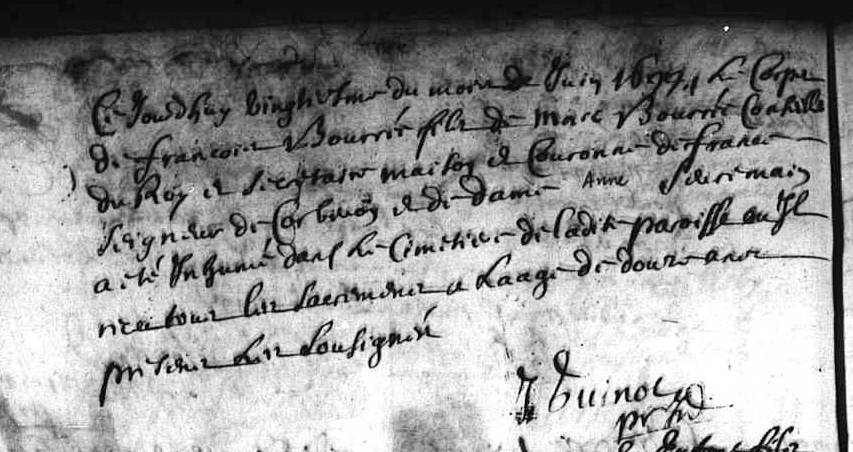 Ce Jourdhuy vingtiesme du mois de Juin 1699, le Corps
de francois Bourrée fils de marc Bourrée Con
du Roy et secretaire maison et Couronne de france
seigneur de Corberon et de dame Anne
a été Inhumé dans le Cimetiere de ladite paroisse ou Il
receu tous les sacremens a Laage de douze ans
presens les sousignés